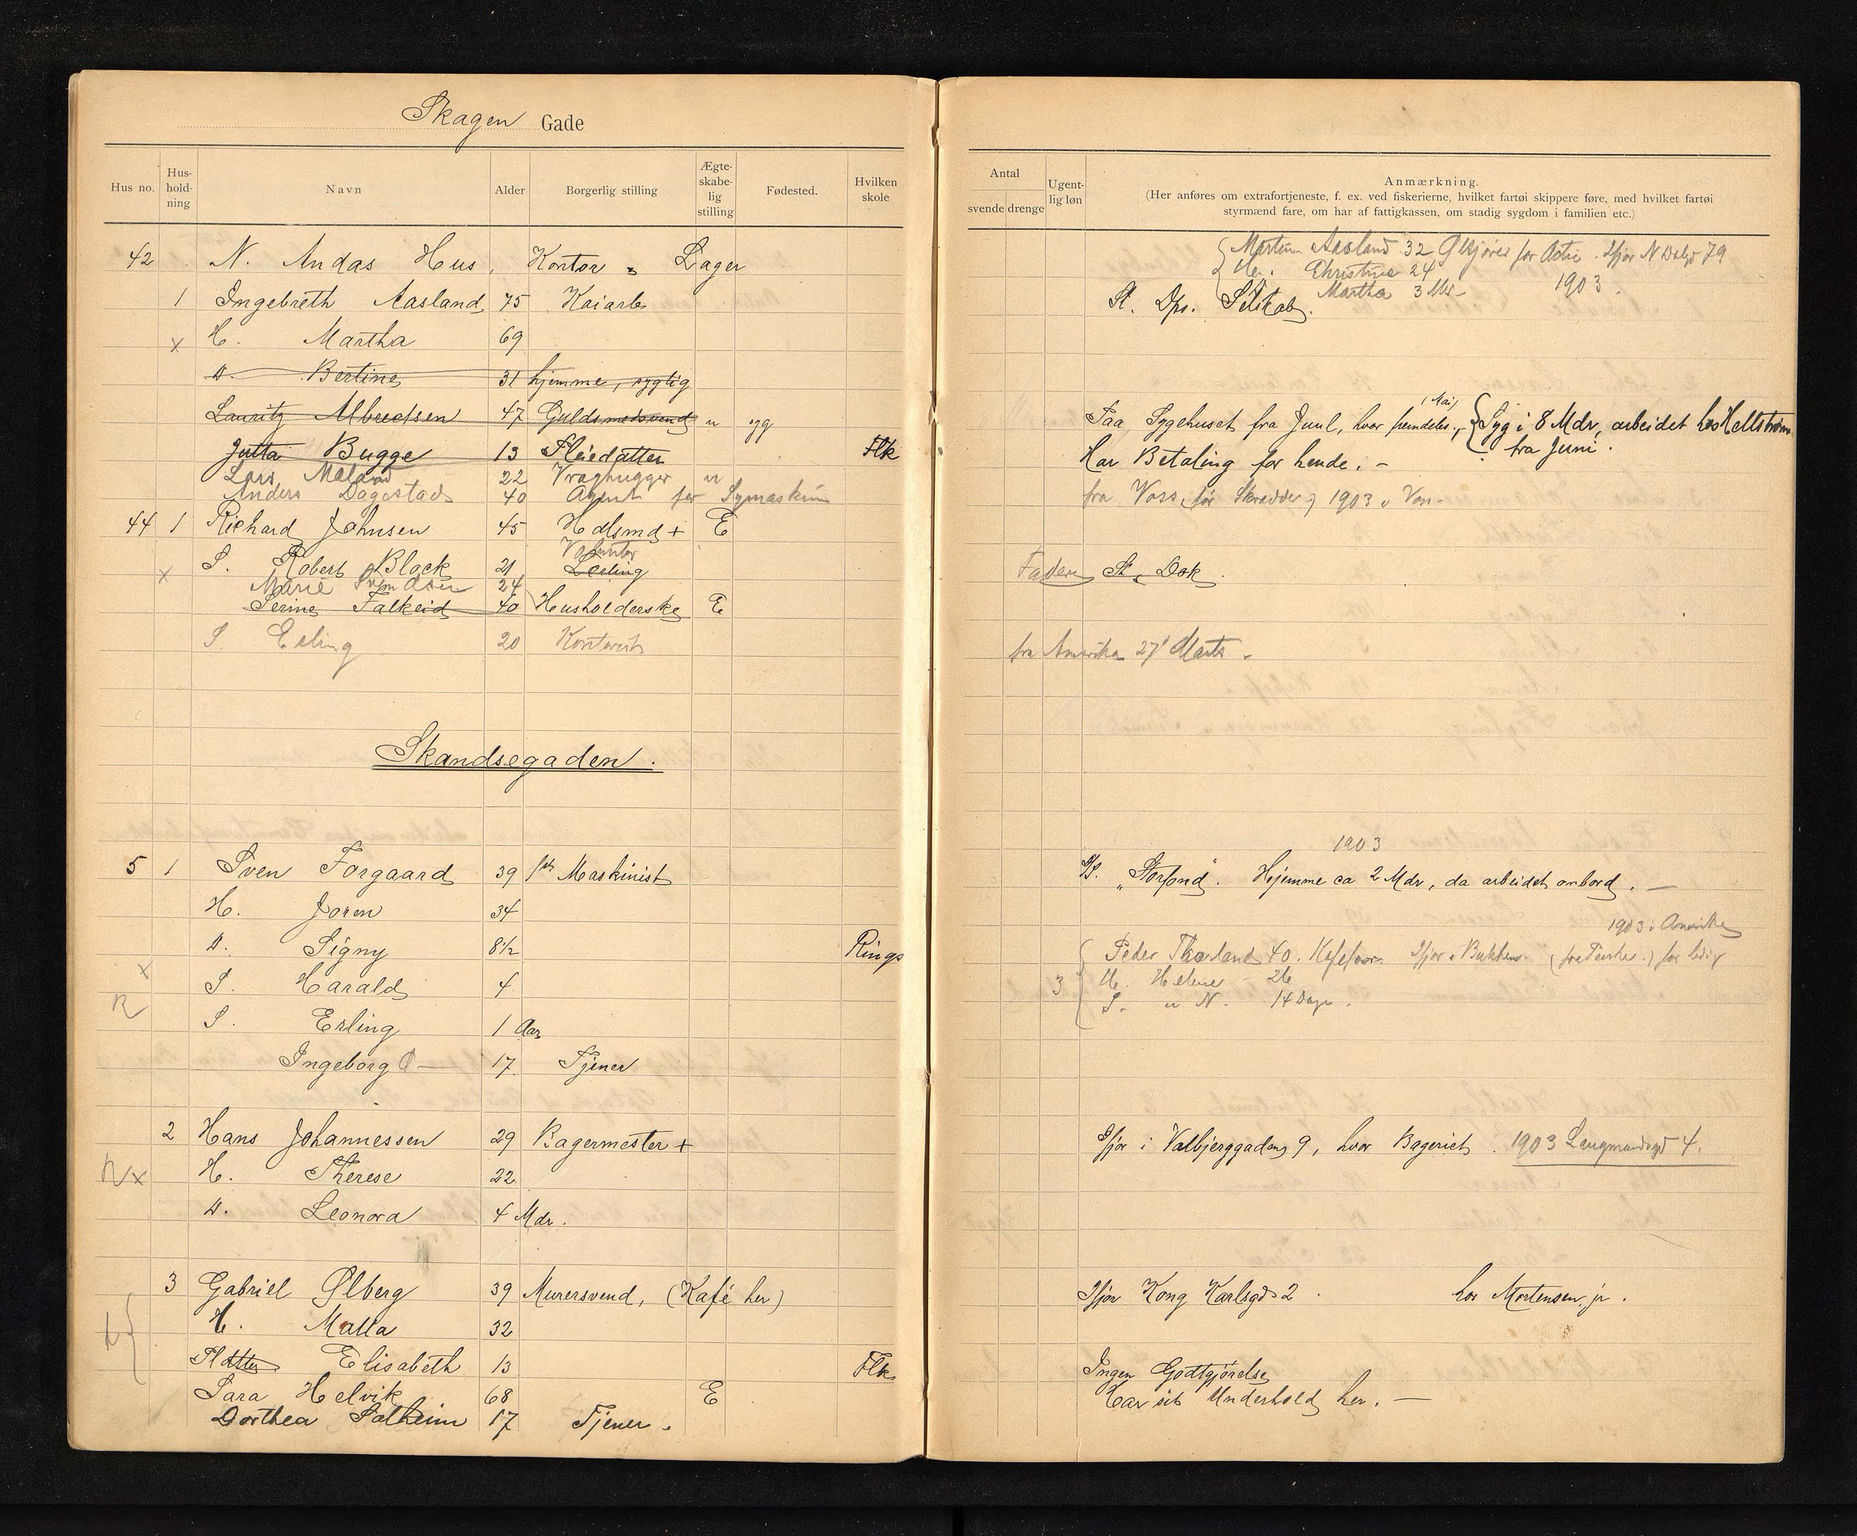 Skagen Gade
Hus no. Hus-hold-ning Navn Alder Borgerlig stilling Ægte-skabe-lig stilling Fødested. Hvilken skole
42 N. Andas Hus, Kontor & Lager
1 Ingebreth Aasland 75 Kaiarb
x H. Martha 69
D. Bertine 31 hjemme, syglig
Lauritz Albredtsen 47 Guldsmedsvend u
Jutta Bugge 13 Pleiedatter Flk
Lars 22 Vraghugger u
Anders Dagestad 40 Agent for Symaskin
44 1 Richard Johnsen 45 Hdlsmd + E
Volontør
x S. Robert Block 21 Lærling
Marie Svendsen 24
Serine Falkeid 40 Husholderske E
S. Erling 20 Kontorist
Skandsegaden.
5 1 Sven Forgaard 39 1ste Maskinist
H. Joren 34
D. Signy 8½ Rings
x S. Harald 4
R S. Erling 1 Aar
Ingeborg 17 Tjener
2 Hans Johannessen 29 Bagermester +
x H. Therese 22
D. Leonora 4 Mdr.
3 Gabriel Ølberg 39 Murersvend, (Kafé her)
H. Malla 32
Pldatter Elisabeth 13 Flk
Sara Helvik 68 E
Dorthea Solheim 17 Tjener.
Antal svende drenge Ugent-lig løn Anmærkning.
(Her anføres om extrafortjeneste, f. ex. ved fiskerierne, hvilket fartøi skippere føre, med hvilket fartøi
styrmænd fare, om har af fattigkassen, om stadig sygdom i familien etc.)
Morten Aasland 32 Ifjor N Dalgd 79
Christine 24
Martha 3 Mdr 1903.
St. Dps. Selskab.
(Mai)
Paa Sygehuset fra Juul, hvor fremdeles, Syg i 8 Mdr, arbeidet hos Hellstrøm
fra Juni.
Har Betaling for hende. -
fra Voss, før Skrædder, 1903 i Voss-
Faderen St. Dok.
fra Amerika 27 Marts -
1903
S/S. "Storfond". Hjemme ca 2 Mdr, da arbeidet ombord. -
1903 i Amerika
Peder Thorland 40. Ifjor i Bukken.
3 H. Helene 26
S. u N. 14 Dage.
Ifjor i Valbjerggaden 9, hvor Bageriet. 1903 Langmandsgd 4.
Ifjor Kong Karlsgd 2. hos Mortensen jr.
Ingen Godtgjørelse
Har sit Underhold her. -